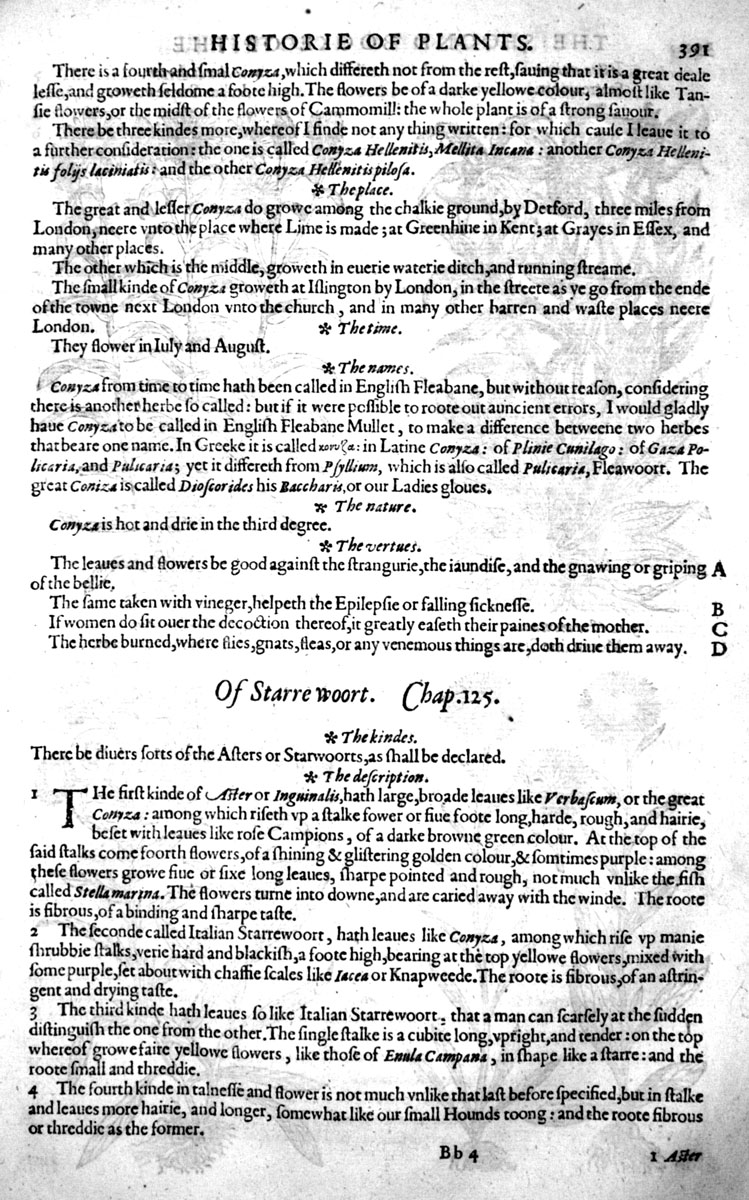 HISTORIE OF PLANTS. 391
There is a fourth and smal Conyza, which differeth not from the rest, sauing that it is a great deale
lesse, and groweth seldome a foote high. The flowers be of a darke yellowe colour, almost like Tan-
sie flowers, or the midst of the flowers of Cammomill: the whole plant is of a strong sauour.
There be three kindes more, whereof I finde not any thing written: for which cause I leaue it to
a further consideration: the one is called Conyza Hellenitis, Mellita Incana: another Conyza Helleni-
tis folijs laciniatis: and the other Conyza Hellenitis pilosa.
✻ The place.
The great and lesser Conyza do growe among the chalkie ground, by Detford, three miles from
London, neere vnto the place where Lime is made; at Greenhiue in Kent; at Grayes in Essex, and
many other places.
The other which is the middle, groweth in euerie waterie ditch, and running streame.
The small kinde of Conyza groweth at Islington by London, in the streete as ye go from the ende
of the towne next London vnto the church, and in many other barren and waste places neere
London. ✻ The time.
They flower in Iuly and August.
✻ The names.
Conyza from time to time hath been called in English Fleabane, but without reason, considering
there is another herbe so called: but if it were possible to roote out auncient errors, I would gladly
haue Conyza to be called in English Fleabane Mullet, to make a difference betweene two herbes
that beare one name. In Greeke it is called κονυζα: in Latine Conyza: of Plinie Cunilago: of Gaza Po-
licaria, and Pulicaria; yet it differeth from Psyllium, which is also called Pulicaria, Fleawoort. The
great Coniza is called Dioscorides his Baccharis, or our Ladies gloues.
✻ The nature.
Conyza is hot and drie in the third degree.
✻ The vertues.
The leaues and flowers be good against the strangurie, the iaundise, and the gnawing or griping A
of the bellie.
The same taken with vineger, helpeth the Epilepsie or falling sicknesse. B
If women do sit ouer the decoction thereof, it greatly easeth their paines of the mother. C
The herbe burned, where flies, gnats, fleas, or any venemous things are, doth driue them away. D
Of Starre woort. Chap. 125.
✻ The kindes.
There be diuers sorts of the Asters or Starwoorts, as shall be declared.
✻ The description.
1 THe first kinde of Aster or Inguinalis, hath large, broade leaues like Verbascum, or the great
Conyza: among which riseth vp a stalke fower or fiue foote long, harde, rough, and hairie,
beset with leaues like rose Campions, of a darke browne green colour. At the top of the
said stalks come foorth flowers, of a shining & glistering golden colour, & somtimes purple: among
these flowers growe fiue or sixe long leaues, sharpe pointed and rough, not much vnlike the fish
called Stella marina. The flowers turne into downe, and are caried away with the winde. The roote
is fibrous, of a binding and sharpe taste.
2 The seconde called Italian Starrewoort, hath leaues like Conyza, among which rise vp manie
shrubbie stalks, verie hard and blackish, a foote high, bearing at the top yellowe flowers, mixed with
some purple, set about with chaffie scales like Iacea or Knapweede. The roote is fibrous, of an astrin-
gent and drying taste.
3 The third kinde hath leaues so like Italian Starrewoort, that a man can scarsely at the sudden
distinguish the one from the other. The single stalke is a cubite long, vpright, and tender: on the top
whereof growe faire yellowe flowers, like those of Enula Campana, in shape like a starre: and the
roote small and threddie.
4 The fourth kinde in talnesse and flower is not much vnlike that last before specified, but in stalke
and leaues more hairie, and longer, somewhat like our small Hounds toong: and the roote fibrous
or threddie as the former.
Bb 4 1 Aster